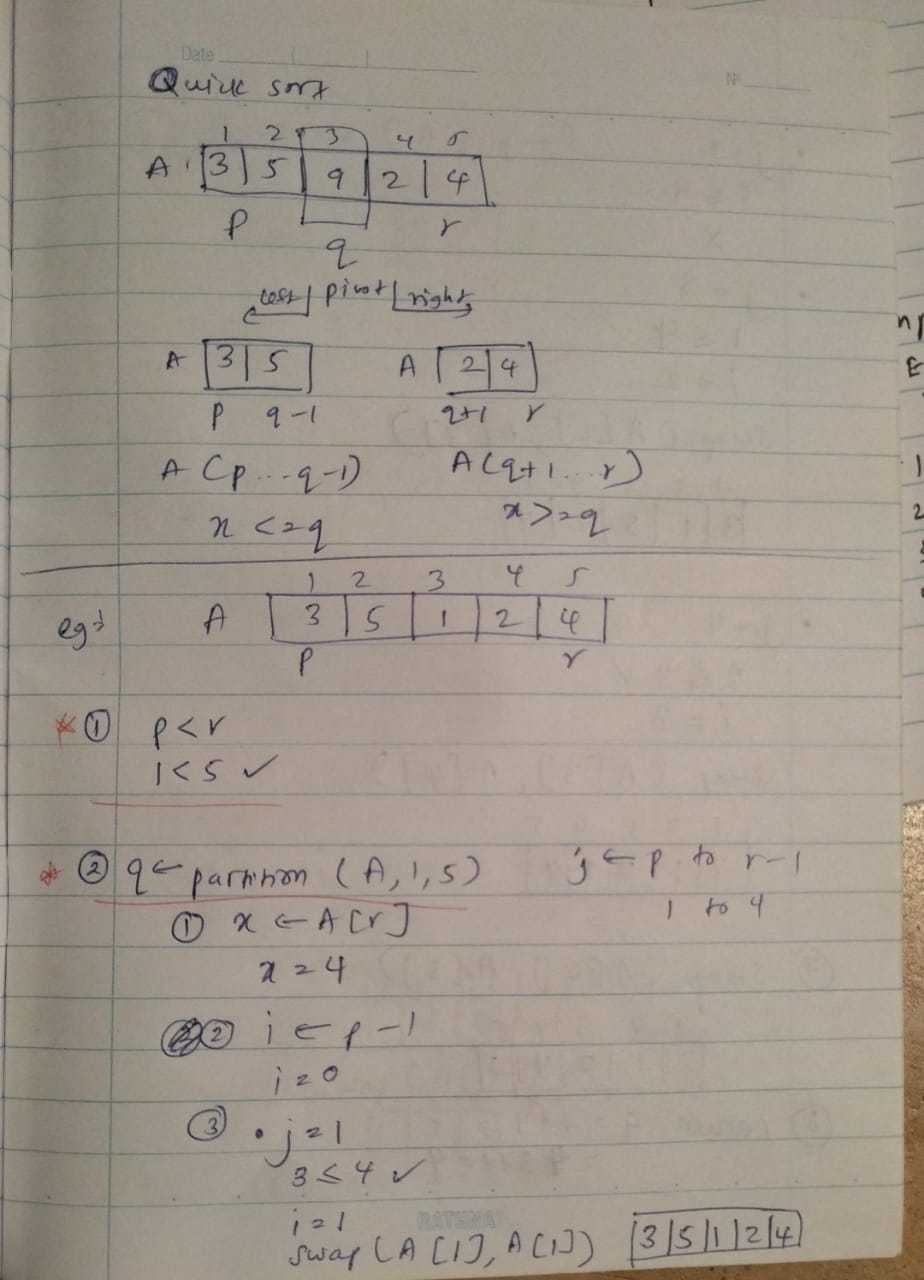 Date
No
Quick sort
1 2 3 4 5
A: 3 5 9 2 4
p q r
left pivot right
A 3 5 A 2 4
p q-1 q+1 r
A (p...q-1) A(q+1...r)
x <= q x >= q
1 2 3 4 5
eg: A 3 5 1 2 4
p r
* ① p < r
1 < 5 ✓
* ② q ← partition (A, 1, 5) j ← p to r-1
① x ← A[r] 1 to 4
x = 4
② i ← p-1
i = 0
③ • j = 1
3 ≤ 4 ✓
i = 1
RATHNA
swap (A[1], A[1]) 3 5 1 2 4